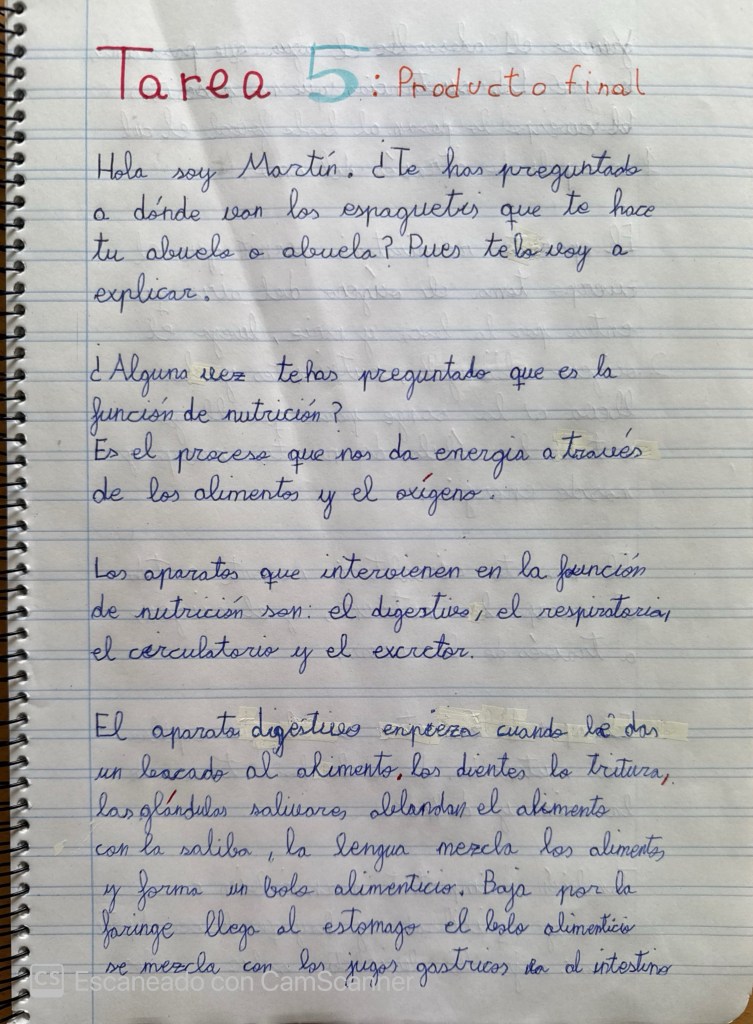 Tarea 5: Producto final
Hola soy Martín. ¿Te has preguntado
a dónde van los espaguetis que te hace
tu abuelo o abuela? Pues telo voy a
explicar.
¿Alguna vez tehas preguntado que es la
función de nutrición?
Es el proceso que nos da energia a través
de los alimentos y el oxígeno.
Los aparatos que intervienen en la función
de nutrición son: el digestivo, el respiratorio,
el circulatorio y el excretor.
El aparato digestivo enpieza cuando le das
un bocado al alimento, los dientes lo tritura,
las glándulas salivares ablandan el alimento
con la saliba, la lengua mezcla los alimentos
y forma un bolo alimenticio. Baja por la
faringe llega al estomago el bolo alimenticio
se mezcla con los jugos gastricos va al intestino
CS Escaneado con CamScanner